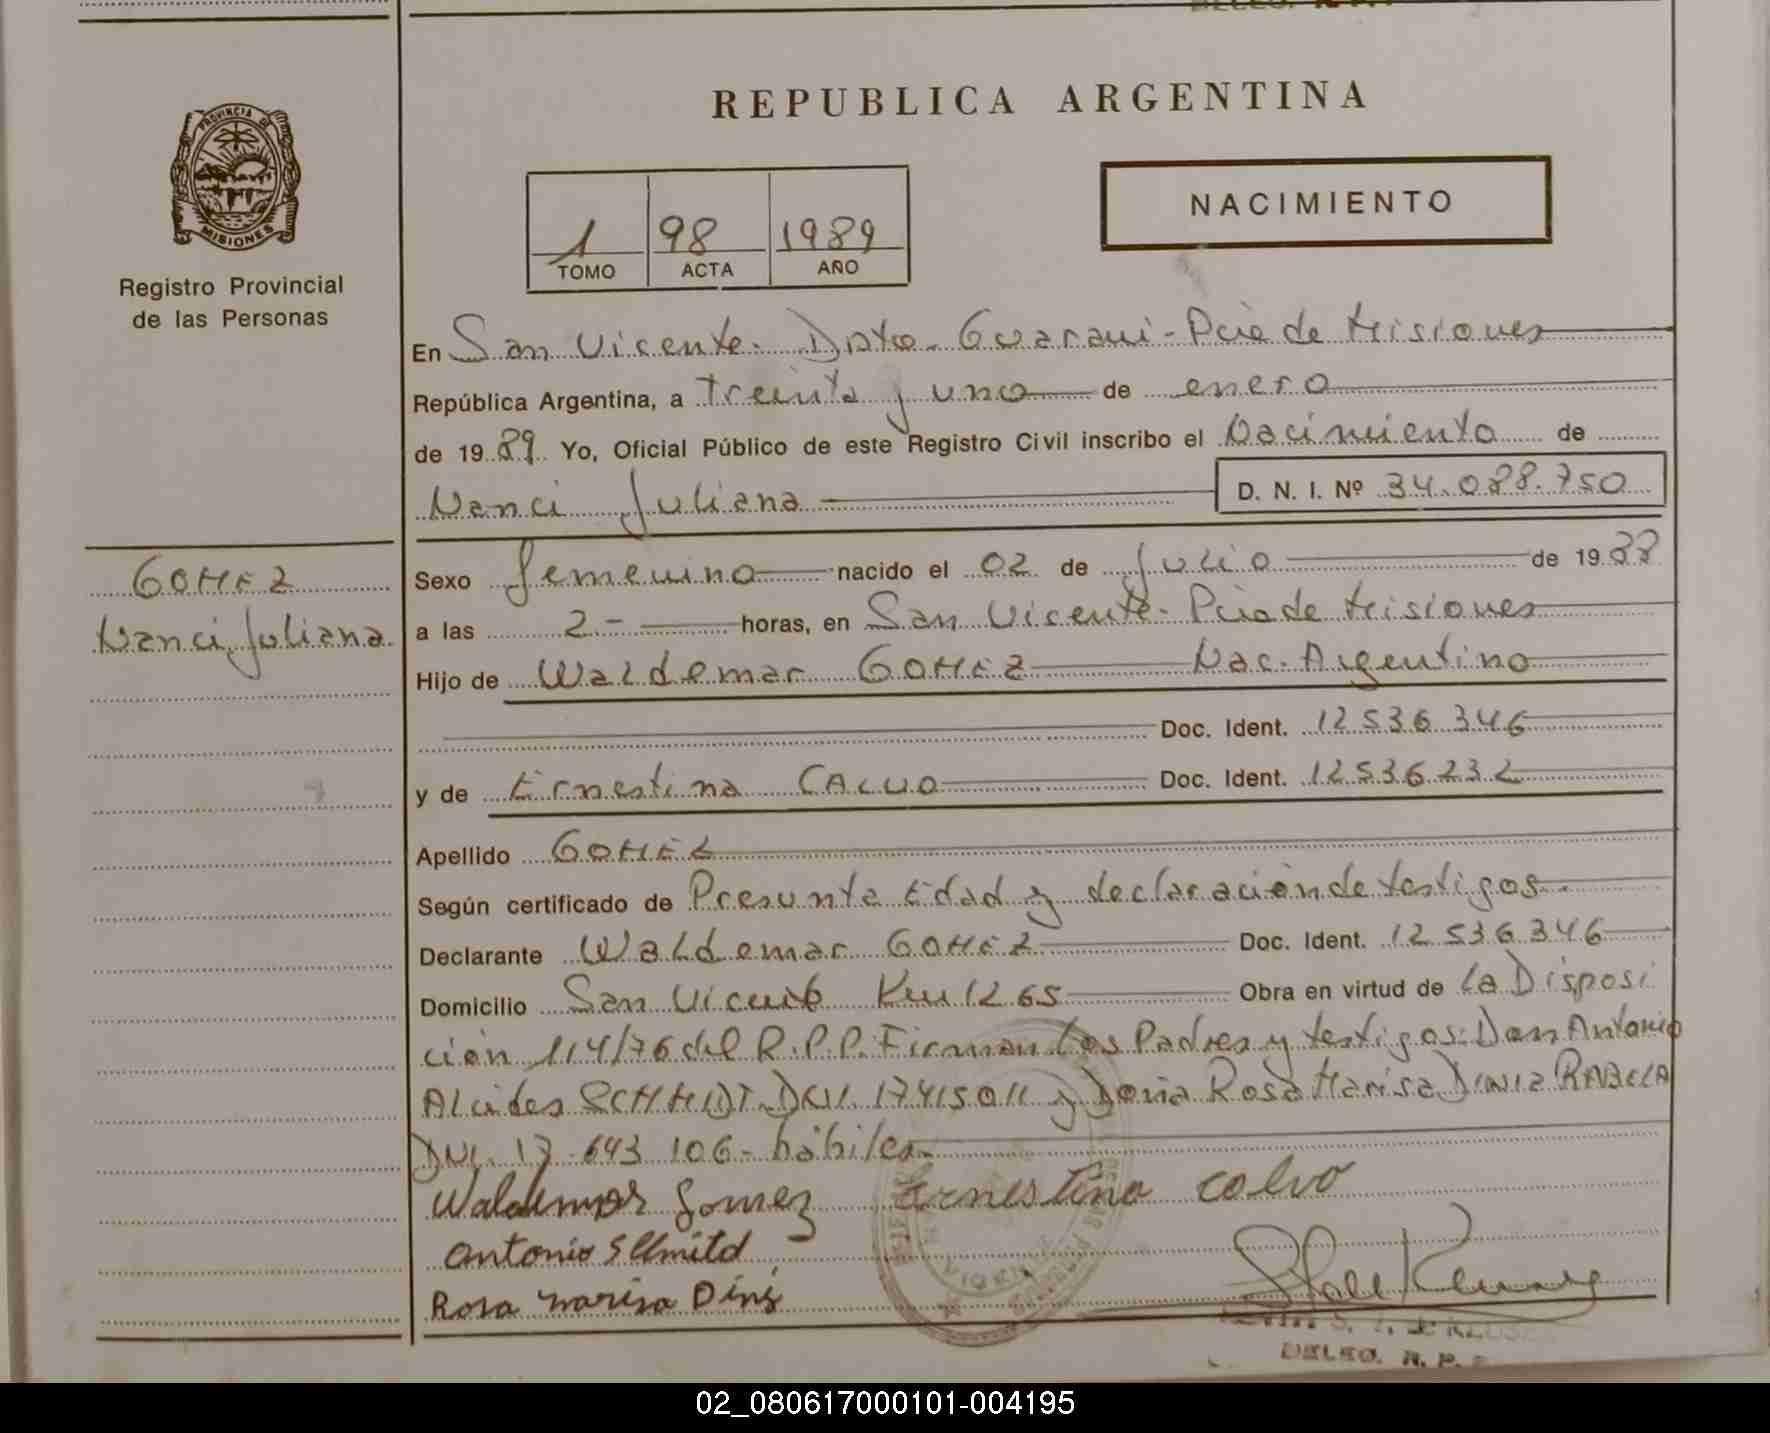 REPUBLICA ARGENTINA
PROVINCIA DE
MISIONES
Registro Provincial
de las Personas
1 98 1989
TOMO ACTA AÑO
NACIMIENTO
En San Vicente. Dpto. Guarani - Pcia de Misiones
República Argentina, a treinta y uno de enero
de 1989 Yo, Oficial Público de este Registro Civil inscribo el Nacimiento de
Nanci Juliana D. N. I. Nº 34.088.750
GOMEZ
Nanci Juliana
Sexo femenino nacido el 02 de Julio de 1988
a las 2 - horas, en San Vicente - Pcia de Misiones
Hijo de Waldemar GOMEZ Nac. Argentino
Doc. Ident. 12536346
y de Ernestina CALVO Doc. Ident. 12536232
Apellido GOMEZ
Según certificado de Presunta Edad y declaración de testigos.
Declarante Waldemar GOMEZ Doc. Ident. 12536346
Domicilio San Vicente Km 1265 Obra en virtud de la Disposi
ción 114/76 del R.P.P. Firman los Padres y testigos: Don Antonio
Alcides SCHMIDT DNI. 17415011 y Doña Rosa Marisa DINIZ RABELA
DNI. 17.643 106 - hábiles
Waldemar Gomez Ernestina Calvo
Antonio SChmitd
Rosa marisa Diniz
DELEG. R. P.
02_080617000101-004195